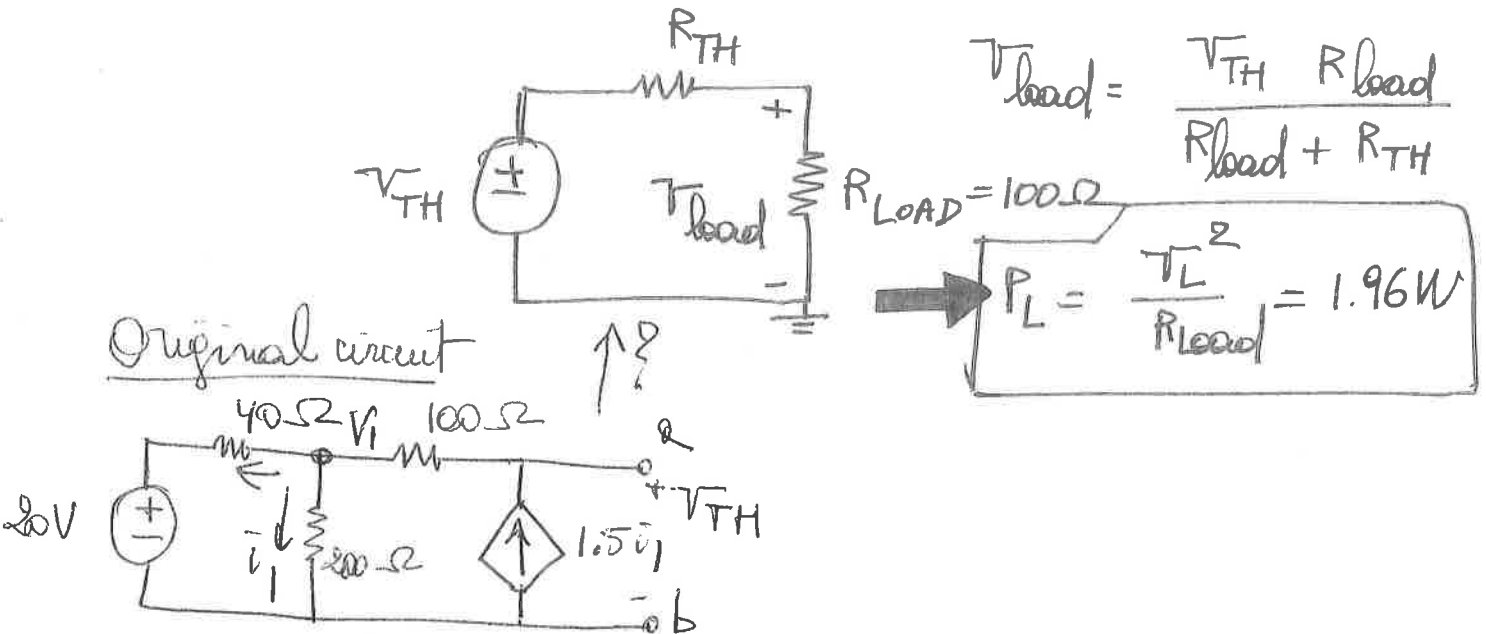 R_TH
V_TH
+
-
V_load
R_LOAD = 100Ω
V_load = V_TH R_load / (R_load + R_TH)
P_L = V_L² / R_Load = 1.96W
Original circuit
↑ ?
40Ω V₁ 100Ω a
20V
+
-
i₁ ↓ 200Ω
1.5i₁
+ V_TH
- b